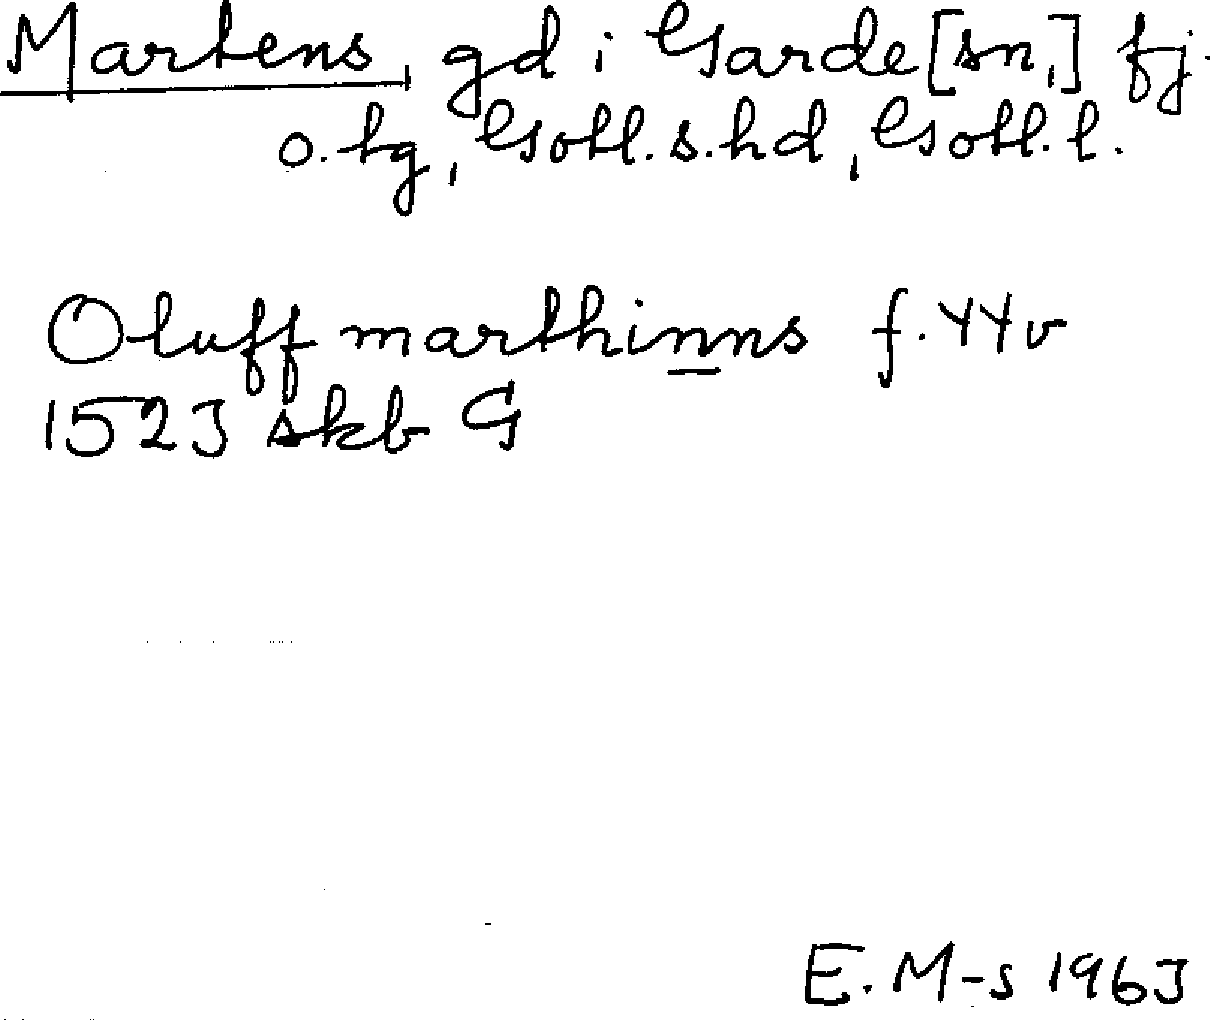 Martens, gd i Garde [sn,] fj.
o. hg, Gotl. s. hd, Gotl. l.
Oluff marthinns f. 44v
1523 skb G
E. M-s 1963